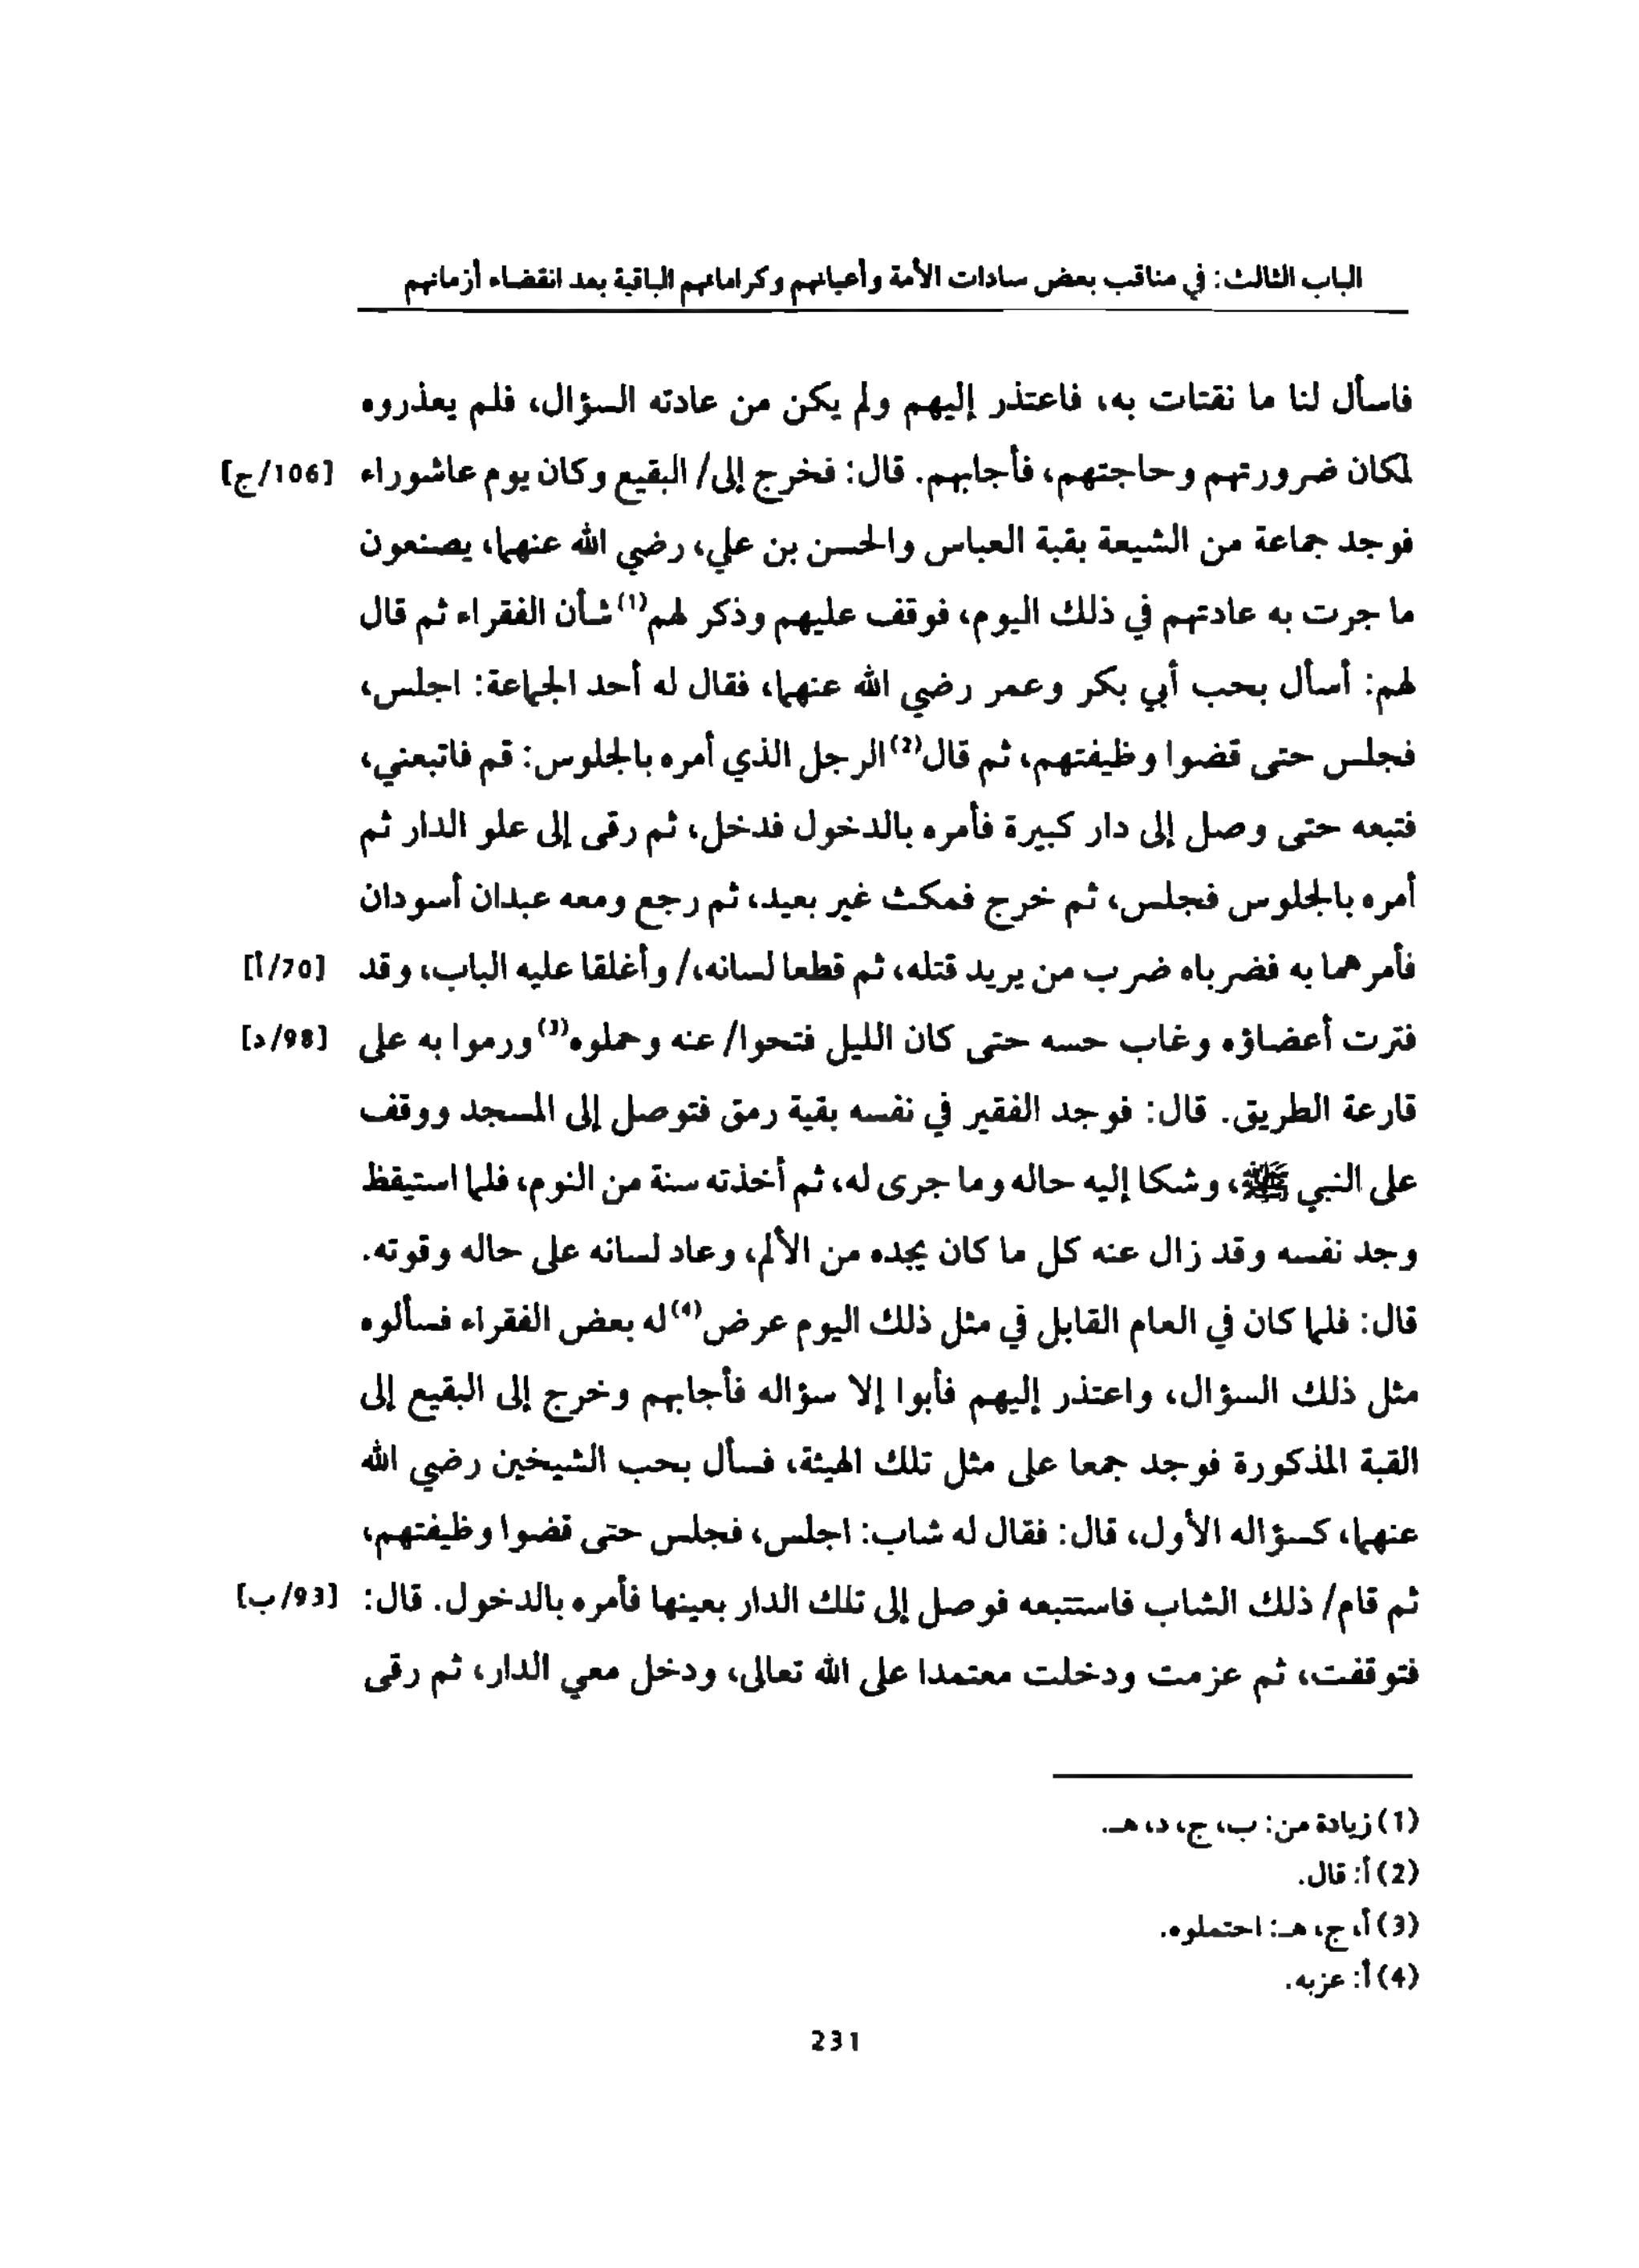 الباب الثالث: في مناقب بعض سادات الأمة وأعيانهم وكراماتهم الباقية بعد انقضاء أزمانهم
فاسأل لنا ما نقتات به، فاعتذر إليهم ولم يكن من عادته السؤال، فلم يعذروه
لمكان ضرورتهم وحاجتهم، فأجابهم. قال: فخرج إلى/ البقيع وكان يوم عاشوراء [106/ج]
فوجد جماعة من الشيعة بقبة العباس والحسن بن علي، رضي الله عنهما، يصنعون
ما جرت به عادتهم في ذلك اليوم، فوقف عليهم وذكر لهم(1) شأن الفقراء ثم قال
لهم: أسأل بحب أبي بكر وعمر رضي الله عنهما، فقال له أحد الجماعة: اجلس،
فجلس حتى قضوا وظيفتهم، ثم قال(2) الرجل الذي أمره بالجلوس: قم فاتبعني،
فتبعه حتى وصل إلى دار كبيرة فأمره بالدخول فدخل، ثم رقى إلى علو الدار ثم
أمره بالجلوس فجلس، ثم خرج فمكث غير بعيد، ثم رجع ومعه عبدان أسودان
فأمرهما به فضرباه ضرب من يريد قتله، ثم قطعا لسانه،/ وأغلقا عليه الباب، وقد [70/أ]
فترت أعضاؤه وغاب حسه حتى كان الليل فتحوا/ عنه وحملوه(3) ورموا به على [98/د]
قارعة الطريق. قال: فوجد الفقير في نفسه بقية رمق فتوصل إلى المسجد ووقف
على النبي ﷺ، وشكا إليه حاله وما جرى له، ثم أخذته سنة من النوم، فلما استيقظ
وجد نفسه وقد زال عنه كل ما كان يجده من الألم، وعاد لسانه على حاله وقوته.
قال: فلما كان في العام القابل في مثل ذلك اليوم عرض(4) له بعض الفقراء فسألوه
مثل ذلك السؤال، واعتذر إليهم فأبوا إلا سؤاله فأجابهم وخرج إلى البقيع إلى
القبة المذكورة فوجد جمعا على مثل تلك الهيئة، فسأل بحب الشيخين رضي الله
عنهما، كسؤاله الأول، قال: فقال له شاب: اجلس، فجلس حتى قضوا وظيفتهم،
ثم قام/ ذلك الشاب فاستتبعه فوصل إلى تلك الدار بعينها فأمره بالدخول. قال: [93/ب]
فتوقفت، ثم عزمت ودخلت معتمدا على الله تعالى، ودخل معي الدار، ثم رقى
(1) زيادة من: ب، ج، د، هـ.
(2) أ: قال.
(3) أ، ج، هـ: احتملوه.
(4) أ: عزبه.
231